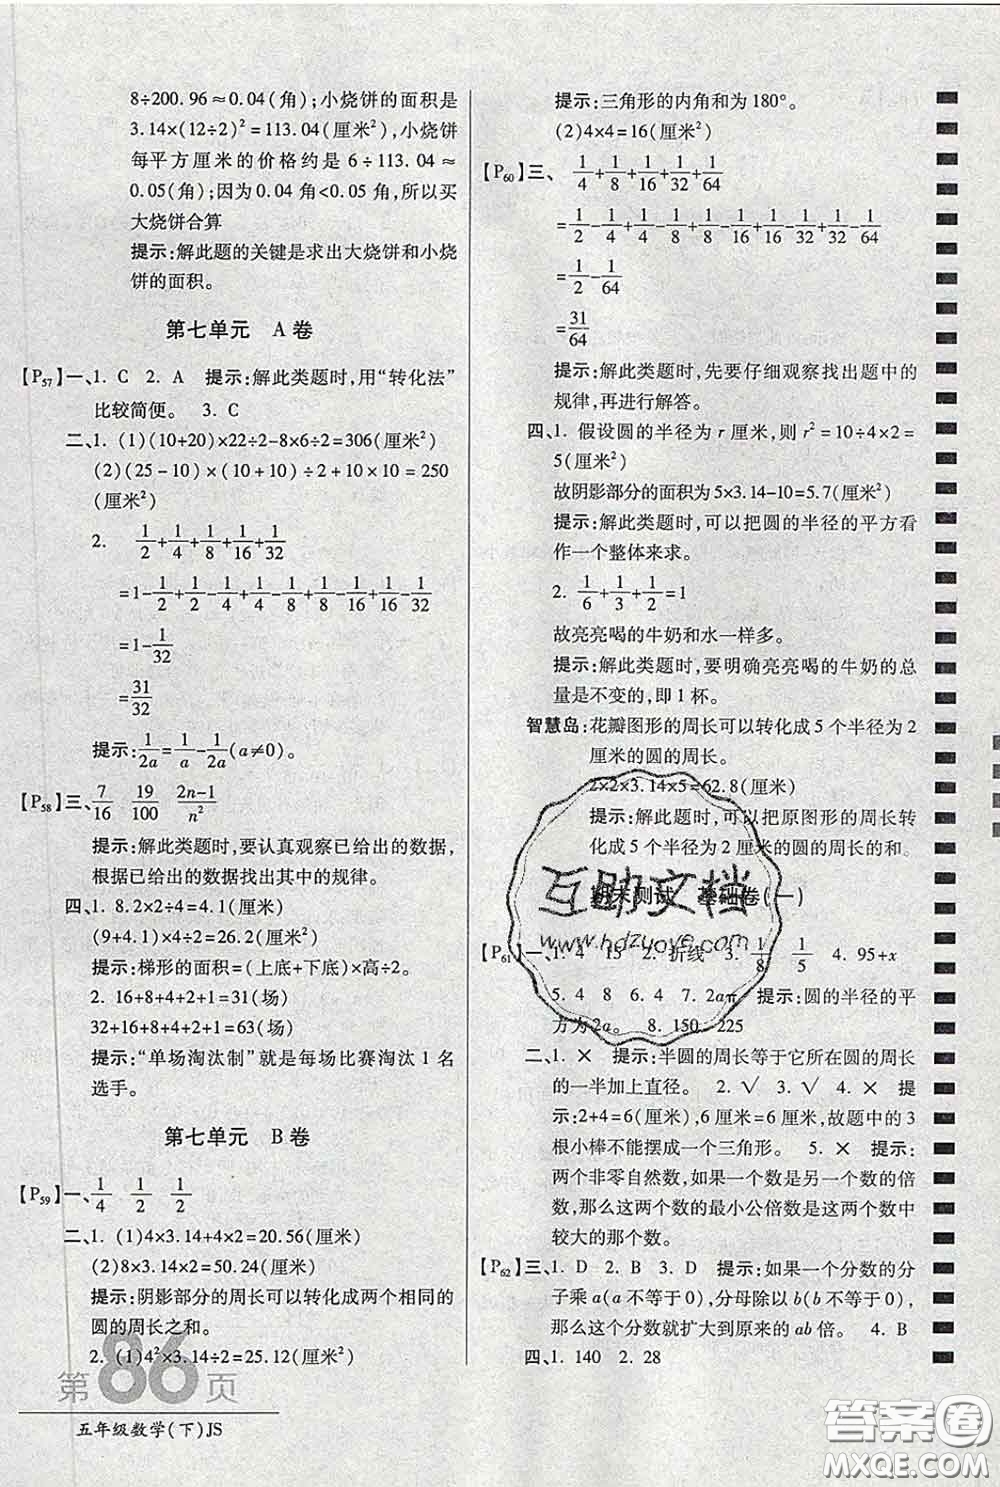 8÷200.96≈0.04(角);小烧饼的面积是
3.14×(12÷2)²=113.04(厘米²),小烧饼
每平方厘米的价格约是 6÷113.04≈
0.05(角);因为 0.04 角<0.05 角,所以买
大烧饼合算
提示:解此题的关键是求出大烧饼和小烧
饼的面积。
第七单元 A卷
【P57】一、1. C 2. A 提示:解此类题时,用“转化法”
比较简便。 3. C
二、1. (1)(10+20)×22÷2-8×6÷2=306(厘米²)
(2)(25-10)×(10+10)÷2+10×10=250
(厘米²)
2. 1/2+1/4+1/8+1/16+1/32
=1-1/2+1/2-1/4+1/4-1/8+1/8-1/16+1/16-1/32
=1-1/32
=31/32
提示:1/2a=1/a-1/2a(a≠0)。
【P58】三、7/16 19/100 2n-1/n²
提示:解此类题时,要认真观察已给出的数据,
根据已给出的数据找出其中的规律。
四、1. 8.2×2÷4=4.1(厘米)
(9+4.1)×4÷2=26.2(厘米)
提示:梯形的面积=(上底+下底)×高÷2。
2. 16+8+4+2+1=31(场)
32+16+8+4+2+1=63(场)
提示:“单场淘汰制”就是每场比赛淘汰 1 名
选手。
第七单元 B卷
【P59】一、1/4 1/2 1/2
二、1. (1)4×3.14+4×2=20.56(厘米)
(2)8×3.14×2=50.24(厘米)
提示:阴影部分的周长可以转化成两个相同的
圆的周长之和。
2. (1)4²×3.14÷2=25.12(厘米²)
第86页
五年级数学(下)JS
提示:三角形的内角和为 180°。
(2)4×4=16(厘米²)
【P60】三、1/4+1/8+1/16+1/32+1/64
=1/2-1/4+1/4-1/8+1/8-1/16+1/16-1/32+1/32-1/64
=1/2-1/64
=31/64
提示:解此类题时,先要仔细观察找出题中的
规律,再进行解答。
四、1. 假设圆的半径为 r 厘米,则 r²=10÷4×2=
5(厘米²)
故阴影部分的面积为5×3.14-10=5.7(厘米²)
提示:解此类题时,可以把圆的半径的平方看
作一个整体来求。
2. 1/6+1/3+1/2=1
故亮亮喝的牛奶和水一样多。
提示:解此类题时,要明确亮亮喝的牛奶的总
量是不变的,即 1 杯。
智慧岛:花瓣图形的周长可以转化成 5 个半径为 2
厘米的圆的周长。
2×2×3.14×5=62.8(厘米)
提示:解此类题时,可以把原图形的周长转
化成 5 个半径为 2 厘米的圆的周长的和。
期末测试 基础卷(一)
互助文档
www.hdzuoye.com
【P61】一、1. 4 15 2. 折线 3. 1/8 1/5 4. 95+x
5. 4 8 6. 4 7. 2aπ 提示:圆的半径的平
方为2a。 8. 150 225
二、1. × 提示:半圆的周长等于它所在圆的周长
的一半加上直径。 2. √ 3. √ 4. × 提
示:2+4=6(厘米),6 厘米=6 厘米,故题中的 3
根小棒不能摆成一个三角形。 5. × 提示:
两个非零自然数,如果一个数是另一个数的倍
数,那么这两个数的最小公倍数是这两个数中
较大的那个数。
【P62】三、1. D 2. B 3. D 提示:如果一个分数的分
子乘 a(a 不等于 0),分母除以 b(b 不等于 0),
那么这个分数就扩大到原来的 ab 倍。 4. B
四、1. 140 2. 28
答案圈
MXQE.COM